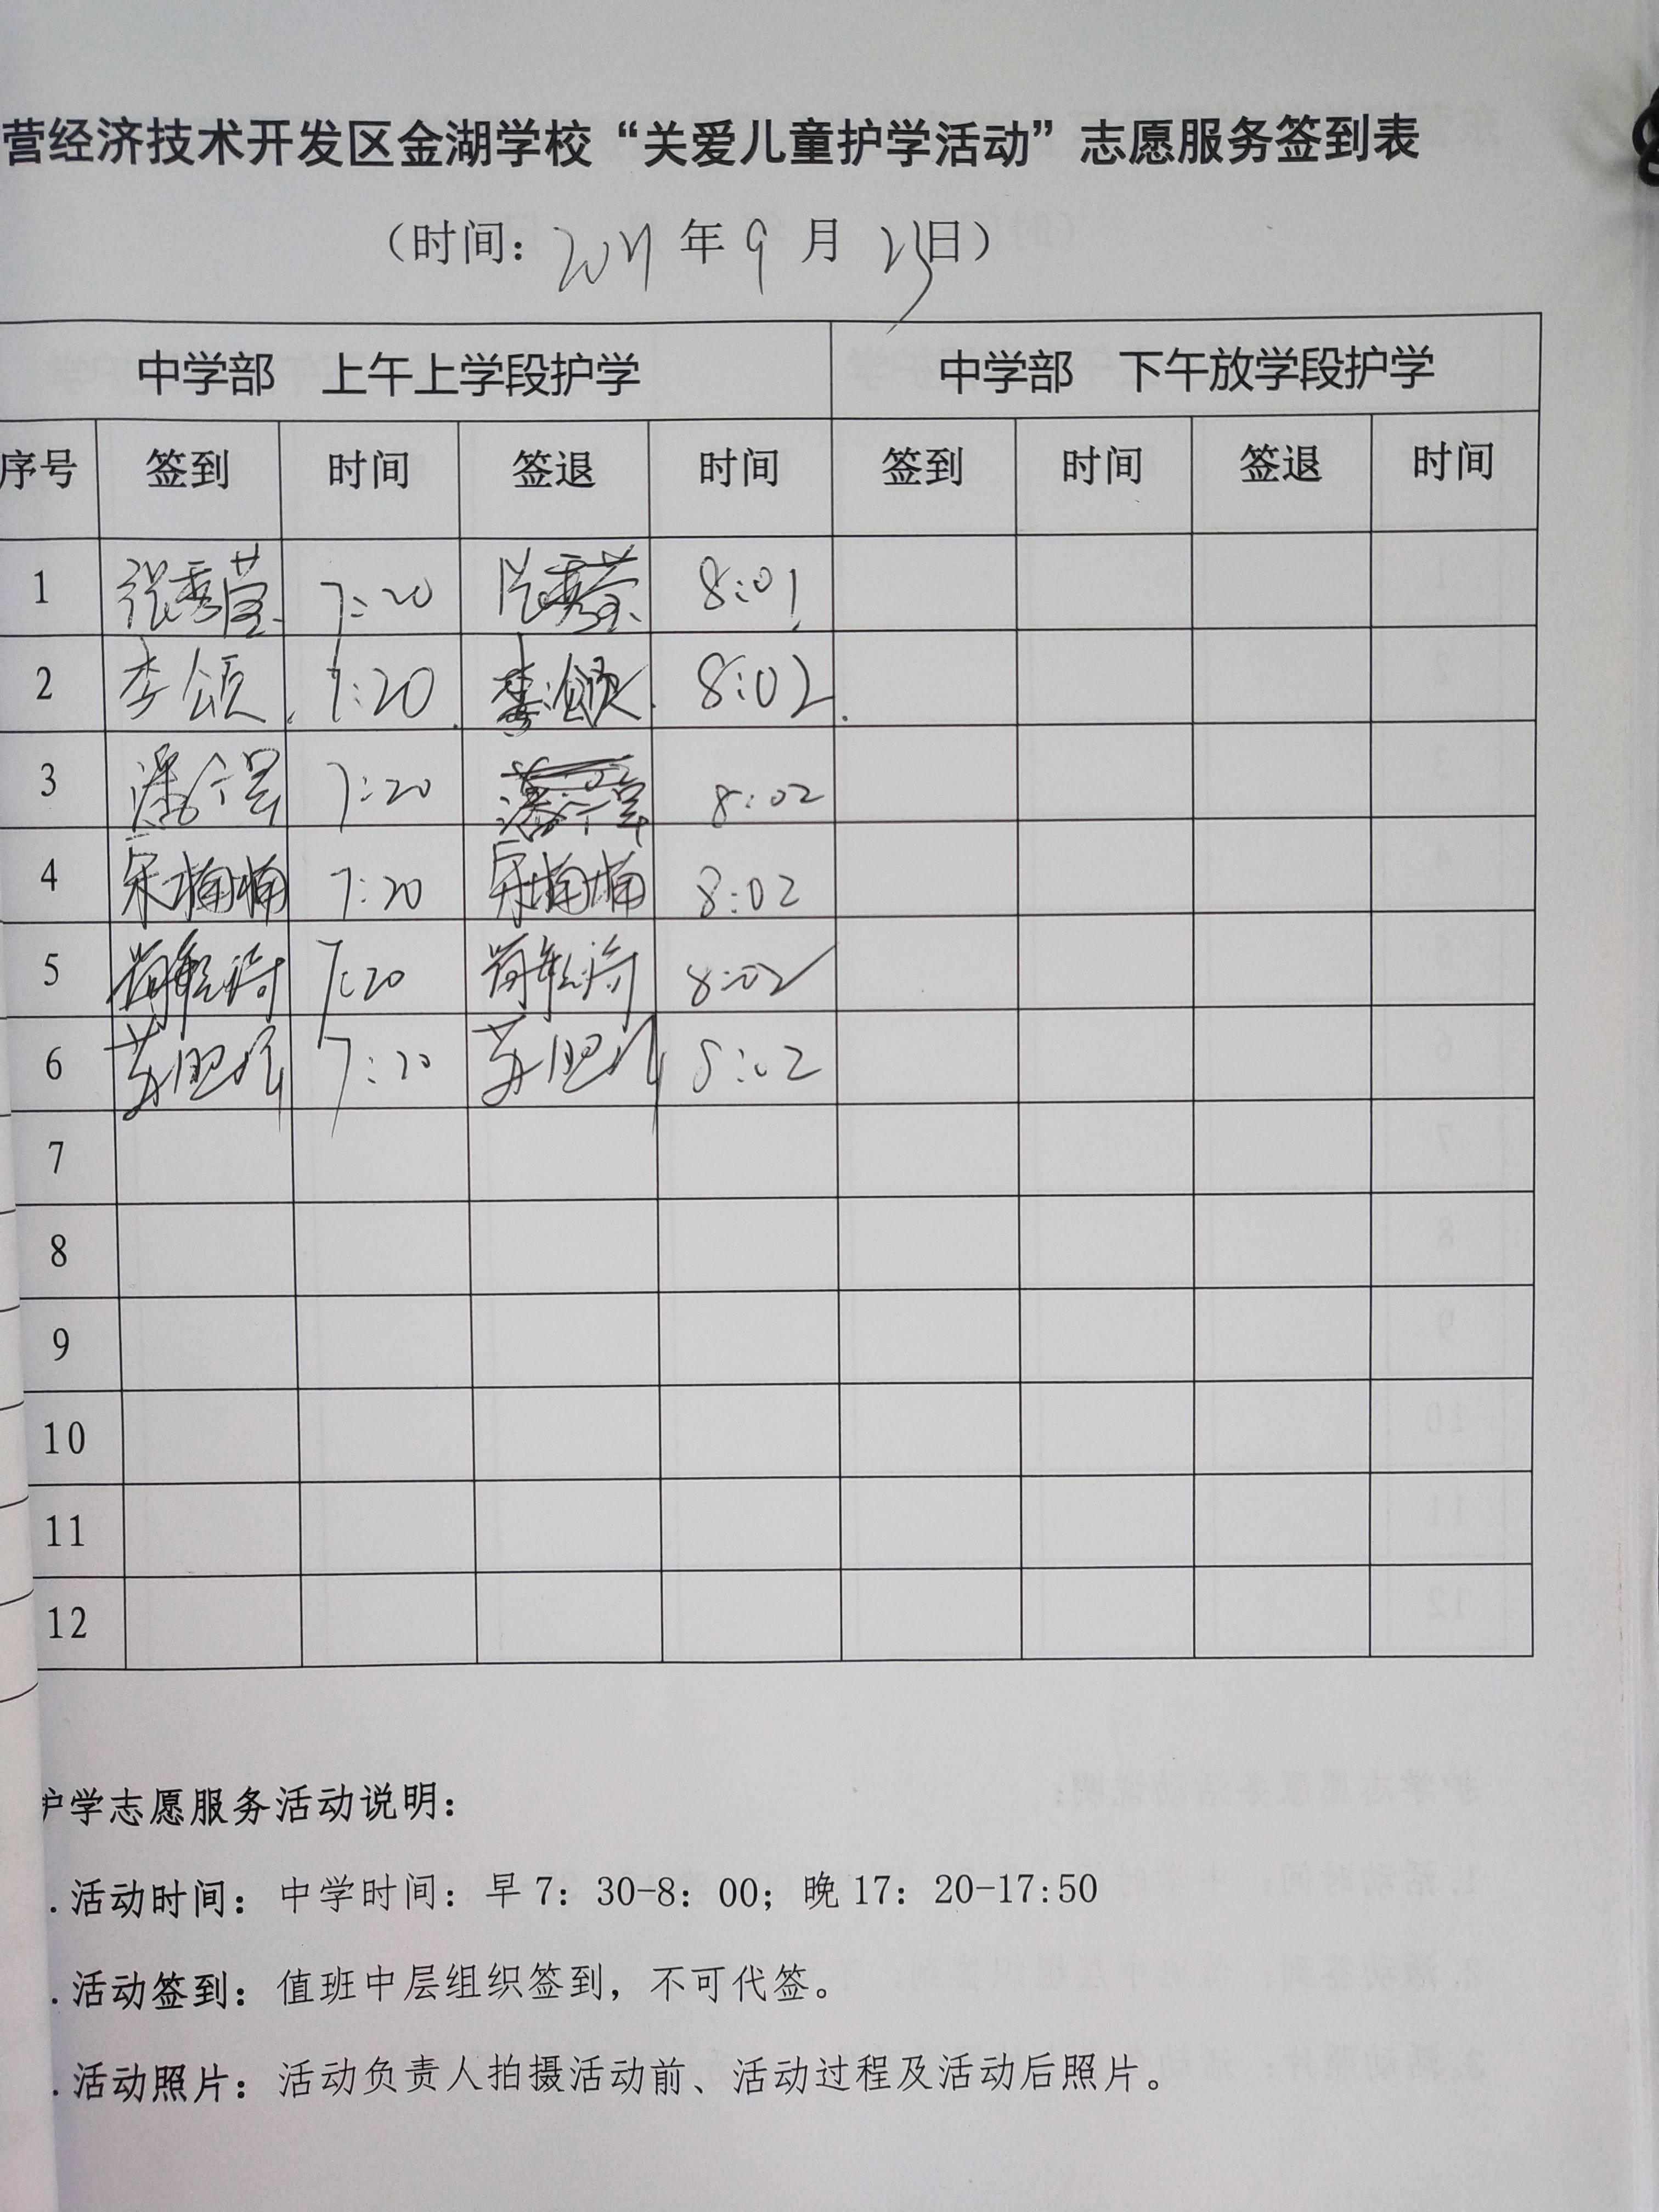 营经济技术开发区金湖学校“关爱儿童护学活动”志愿服务签到表
（时间：2021 年 9 月 23日）
中学部 上午上学段护学 中学部 下午放学段护学
序号 签到 时间 签退 时间 签到 时间 签退 时间
1 张秀莹 7:20 张秀莹 8:01
2 李颂 7:20 李颂 8:02
3 7:20 8:02
4 宋楠楠 7:20 宋楠楠 8:02
5 7:20 8:02
6 7:20 8:02
7
8
9
10
11
12
护学志愿服务活动说明：
.活动时间：中学时间：早 7：30-8：00；晚 17：20-17:50
.活动签到：值班中层组织签到，不可代签。
.活动照片：活动负责人拍摄活动前、活动过程及活动后照片。